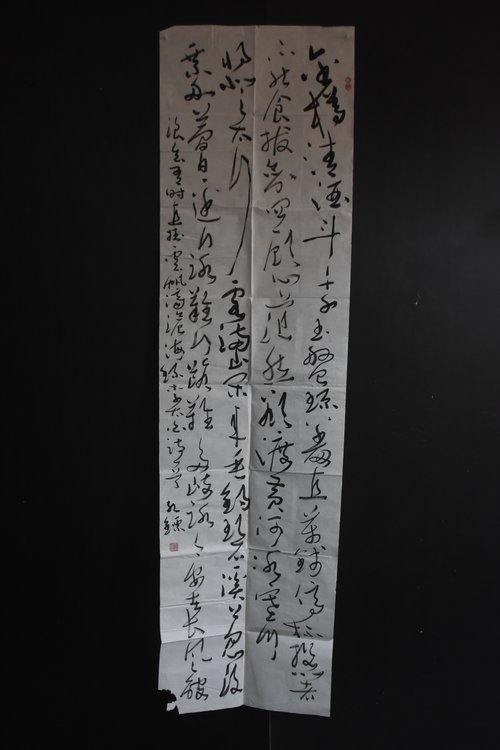 金樽清酒斗十千玉盤珍羞直萬錢停杯投箸
不能食拔劍四顧心茫然欲渡黃河冰塞川
將登太行雪滿山閑來垂釣碧溪上忽復
乘舟夢日邊行路難行路難多歧路今安在長風破
浪會有時直挂雲帆濟滄海